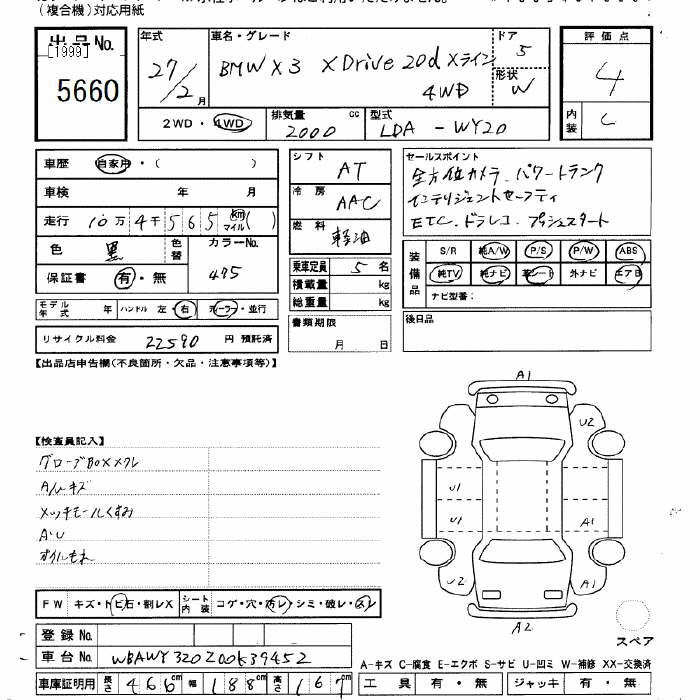 (複合機)対応用紙
出品No.
[1999]
5660
年式
27/2月
車名・グレード
BMW X3 XDrive 20d Xライン
4WD
ドア
5
形状
W
評価点
4
内装
C
2WD・4WD
排気量
2000 cc
型式
LDA-WY20
車歴 自家用・( )
車検 年 月
走行 10万4千565 km マイル( )
色 黒
色替
カラーNo.
475
保証書 有・無
モデル年式 年
ハンドル 左・右
ディーラー・並行
リサイクル料金 22590 円 預託済
シフト AT
冷房 AAC
燃料 軽油
乗車定員 5名
積載量 kg
総重量 kg
書類期限
月 日
セールスポイント
全方位カメラ.パワートランク
インテリジェントセーフティ
ETC.ドラレコ プッシュスタート
装備品
S/R 純A/W P/S P/W ABS
純TV 純ナビ 革シート 外ナビ エアB
ナビ型番:
後日品
【出品店申告欄(不良箇所・欠品・注意事項等)】
【検査員記入】
グローブBOXメクレ
A/Wキズ
メッキモールくすみ
A・U
オイルモレ
A1
U2
U1
U1
A1
U2
A1
A2
スペア
FW キズ・トビ石・割レX
シート内装 コゲ・穴・汚レ・シミ・破レ・スレ
登録No.
車台No. WBAWY320Z00K39452
車庫証明用 長さ 466cm 幅 188cm 高さ 167cm
A-キズ C-腐食 E-エクボ S-サビ U-凹ミ W-補修 XX-交換済
工具 有・無 ジャッキ 有・無